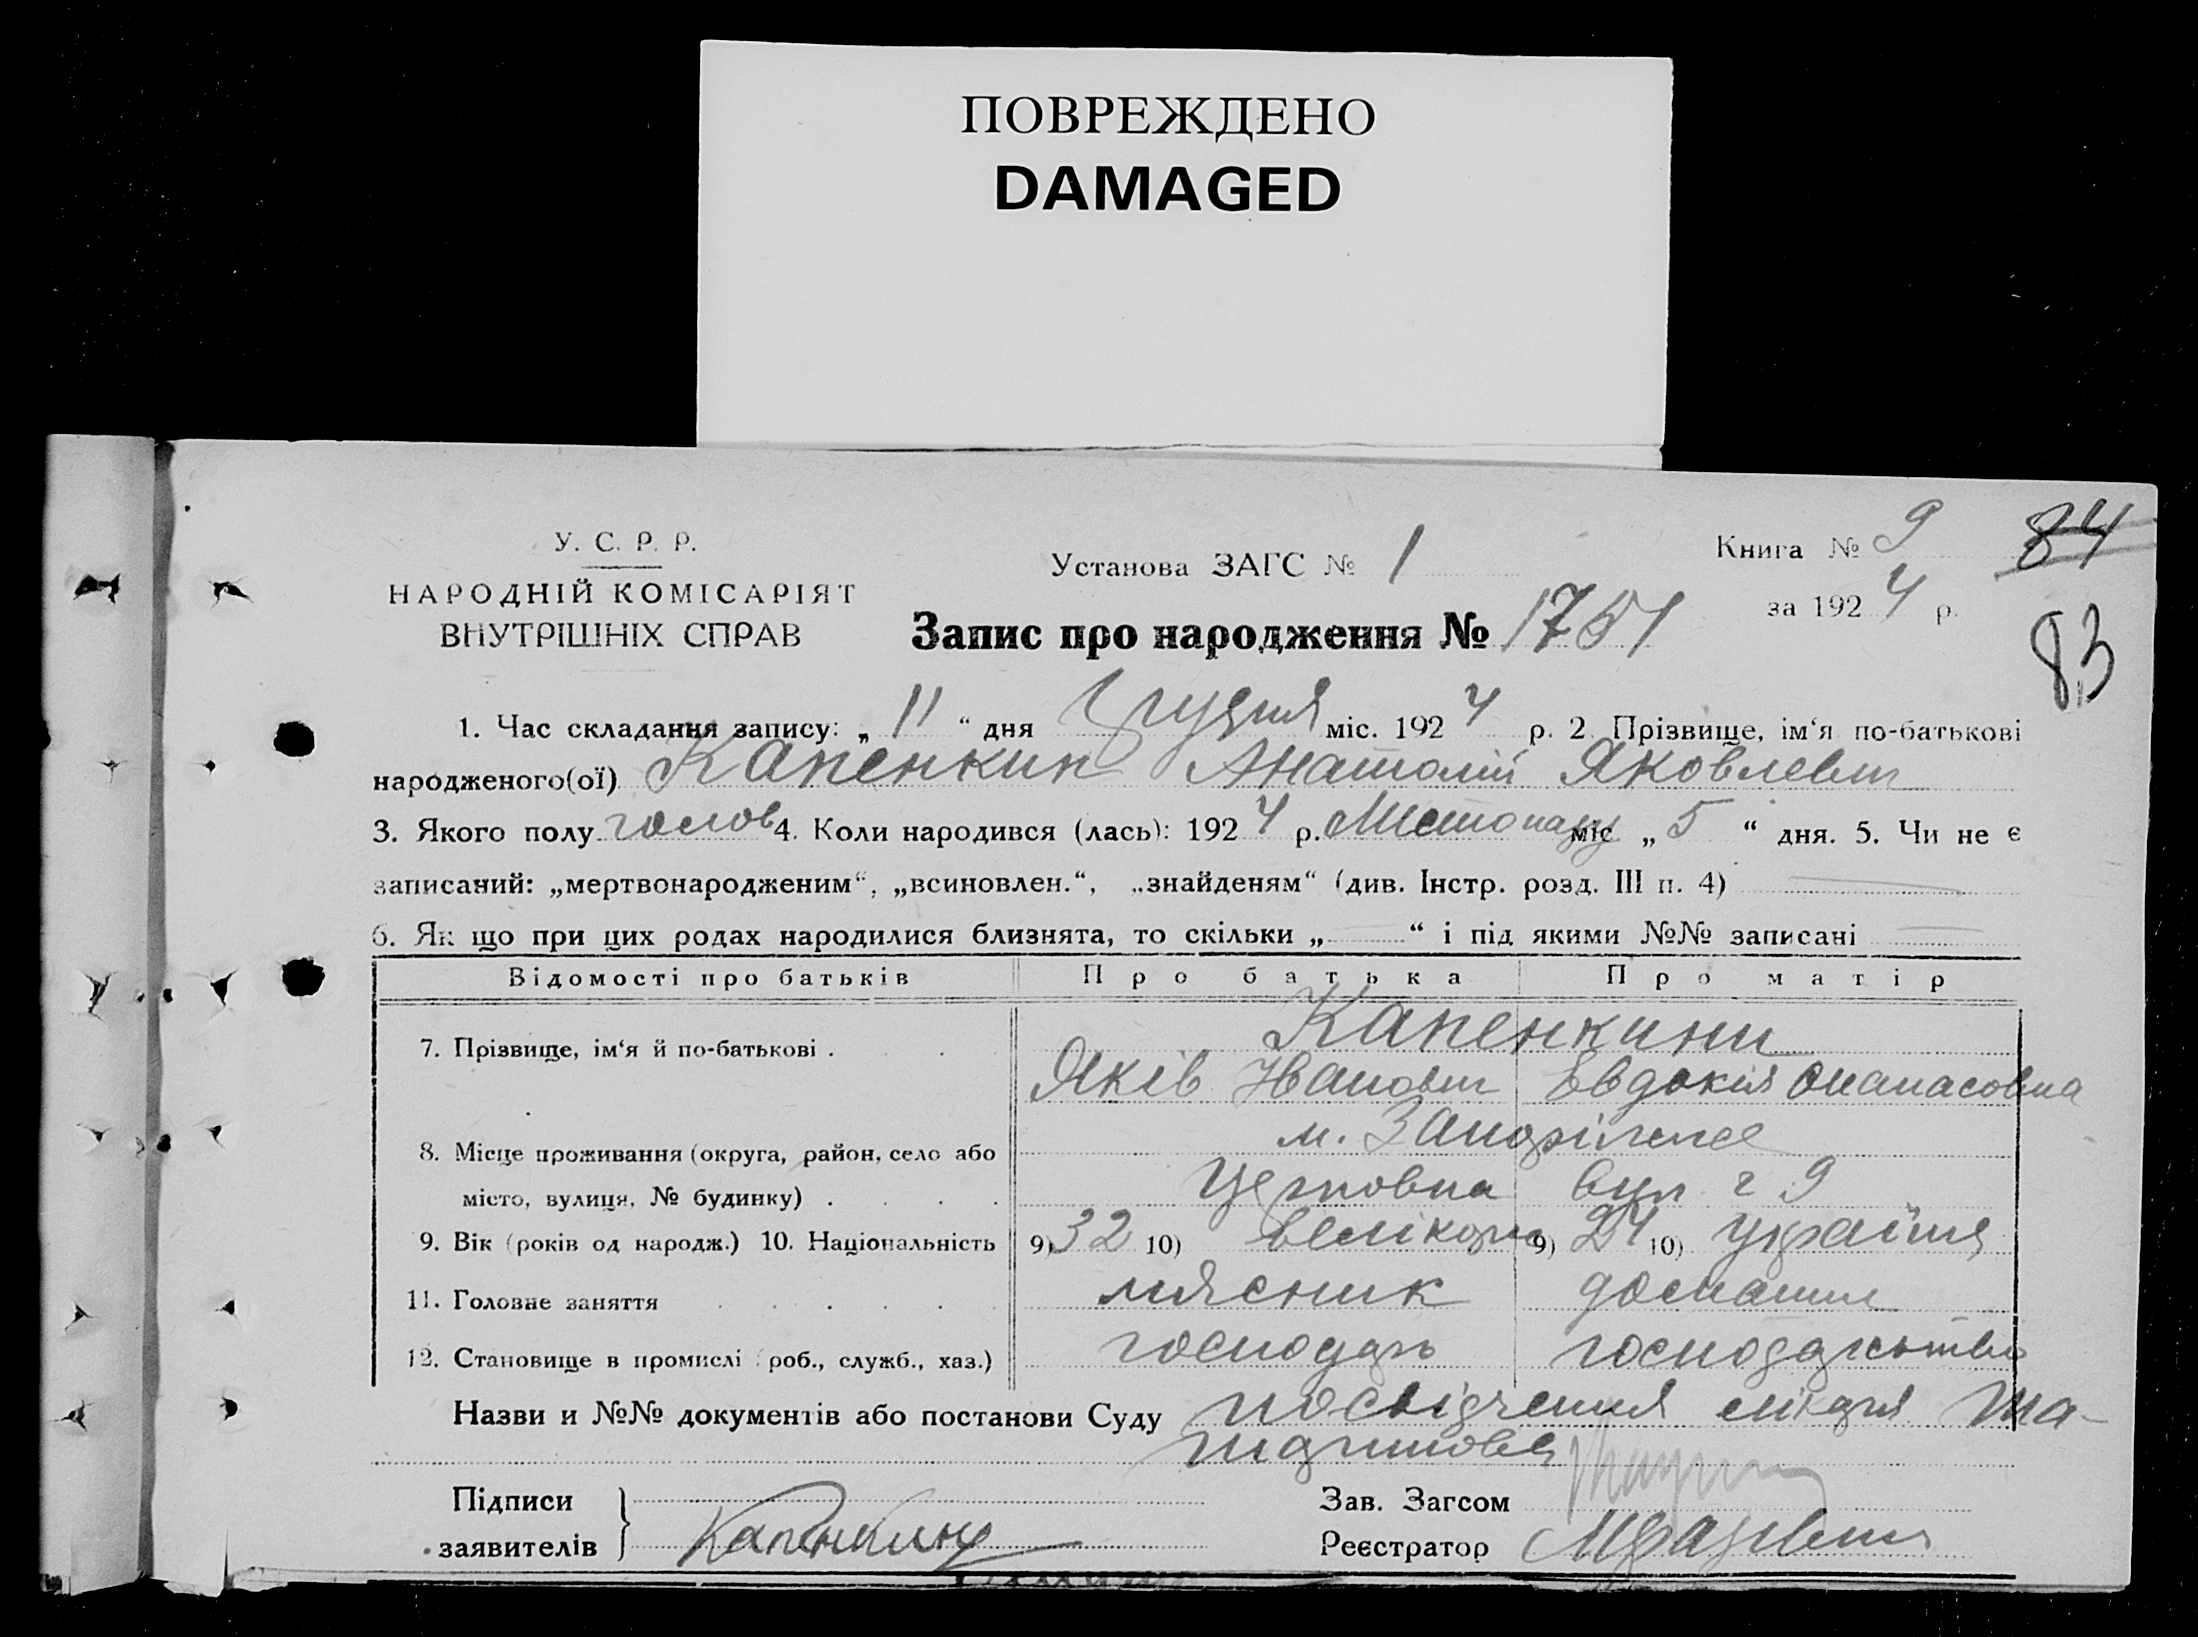 ПОВРЕЖДЕНО
DAMAGED
У. С. Р. Р.
НАРОДНІЙ КОМІСАРІЯТ
ВНУТРІШНІХ СПРАВ
Установа ЗАГС № 1
Книга № 9
84
за 1924 р.
83
Запис про народження № 1751
1. Час складання запису: „ 11 “ дня Грудня міс. 1924 р. 2. Прізвище, ім‘я по-батькові
народженого(ої) Капенкин Анатолій Яковлевич
3. Якого полу голов 4. Коли народився (лась): 1924 р. Листопаду міс „ 5 “ дня. 5. Чи не є
записаний: „мертвонародженим“, „всиновлен.“, „знайденям“ (див. Інстр. розд. III п. 4)
6. Як що при цих родах народилися близнята, то скільки „ “ і під якими №№ записані
Відомості про батьків Про батька Про матір
7. Прізвище, ім‘я й по-батькові . Капенкини
Яків Іванович Евдокія Опанасовна
8. Місце проживання (округа, район, село або м. Запоріжжє
місто, вулиця, № будинку) . Церковна вул ч 9
9. Вік (років од народж.) 10. Національність 9) 32 10) велікорос 9) 24 10) україн
11. Головне заняття мясник домашнє
12. Становище в промислі (роб., служб., хаз.) господарь господарство
Назви и №№ документів або постанови Суду посвідчення лікаря
Підписи
заявителів Капенкину
Зав. Загсом
Реєстратор